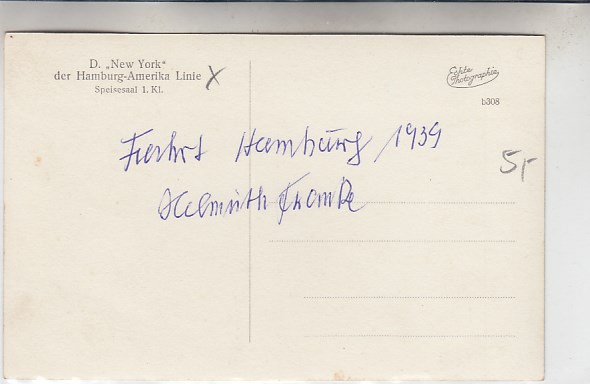 D. „New York“
der Hamburg-Amerika Linie X
Speisesaal 1. Kl.
Echte
Photographie
b308
Fahrt Hamburg 1939
5,-
Helmuth Franke